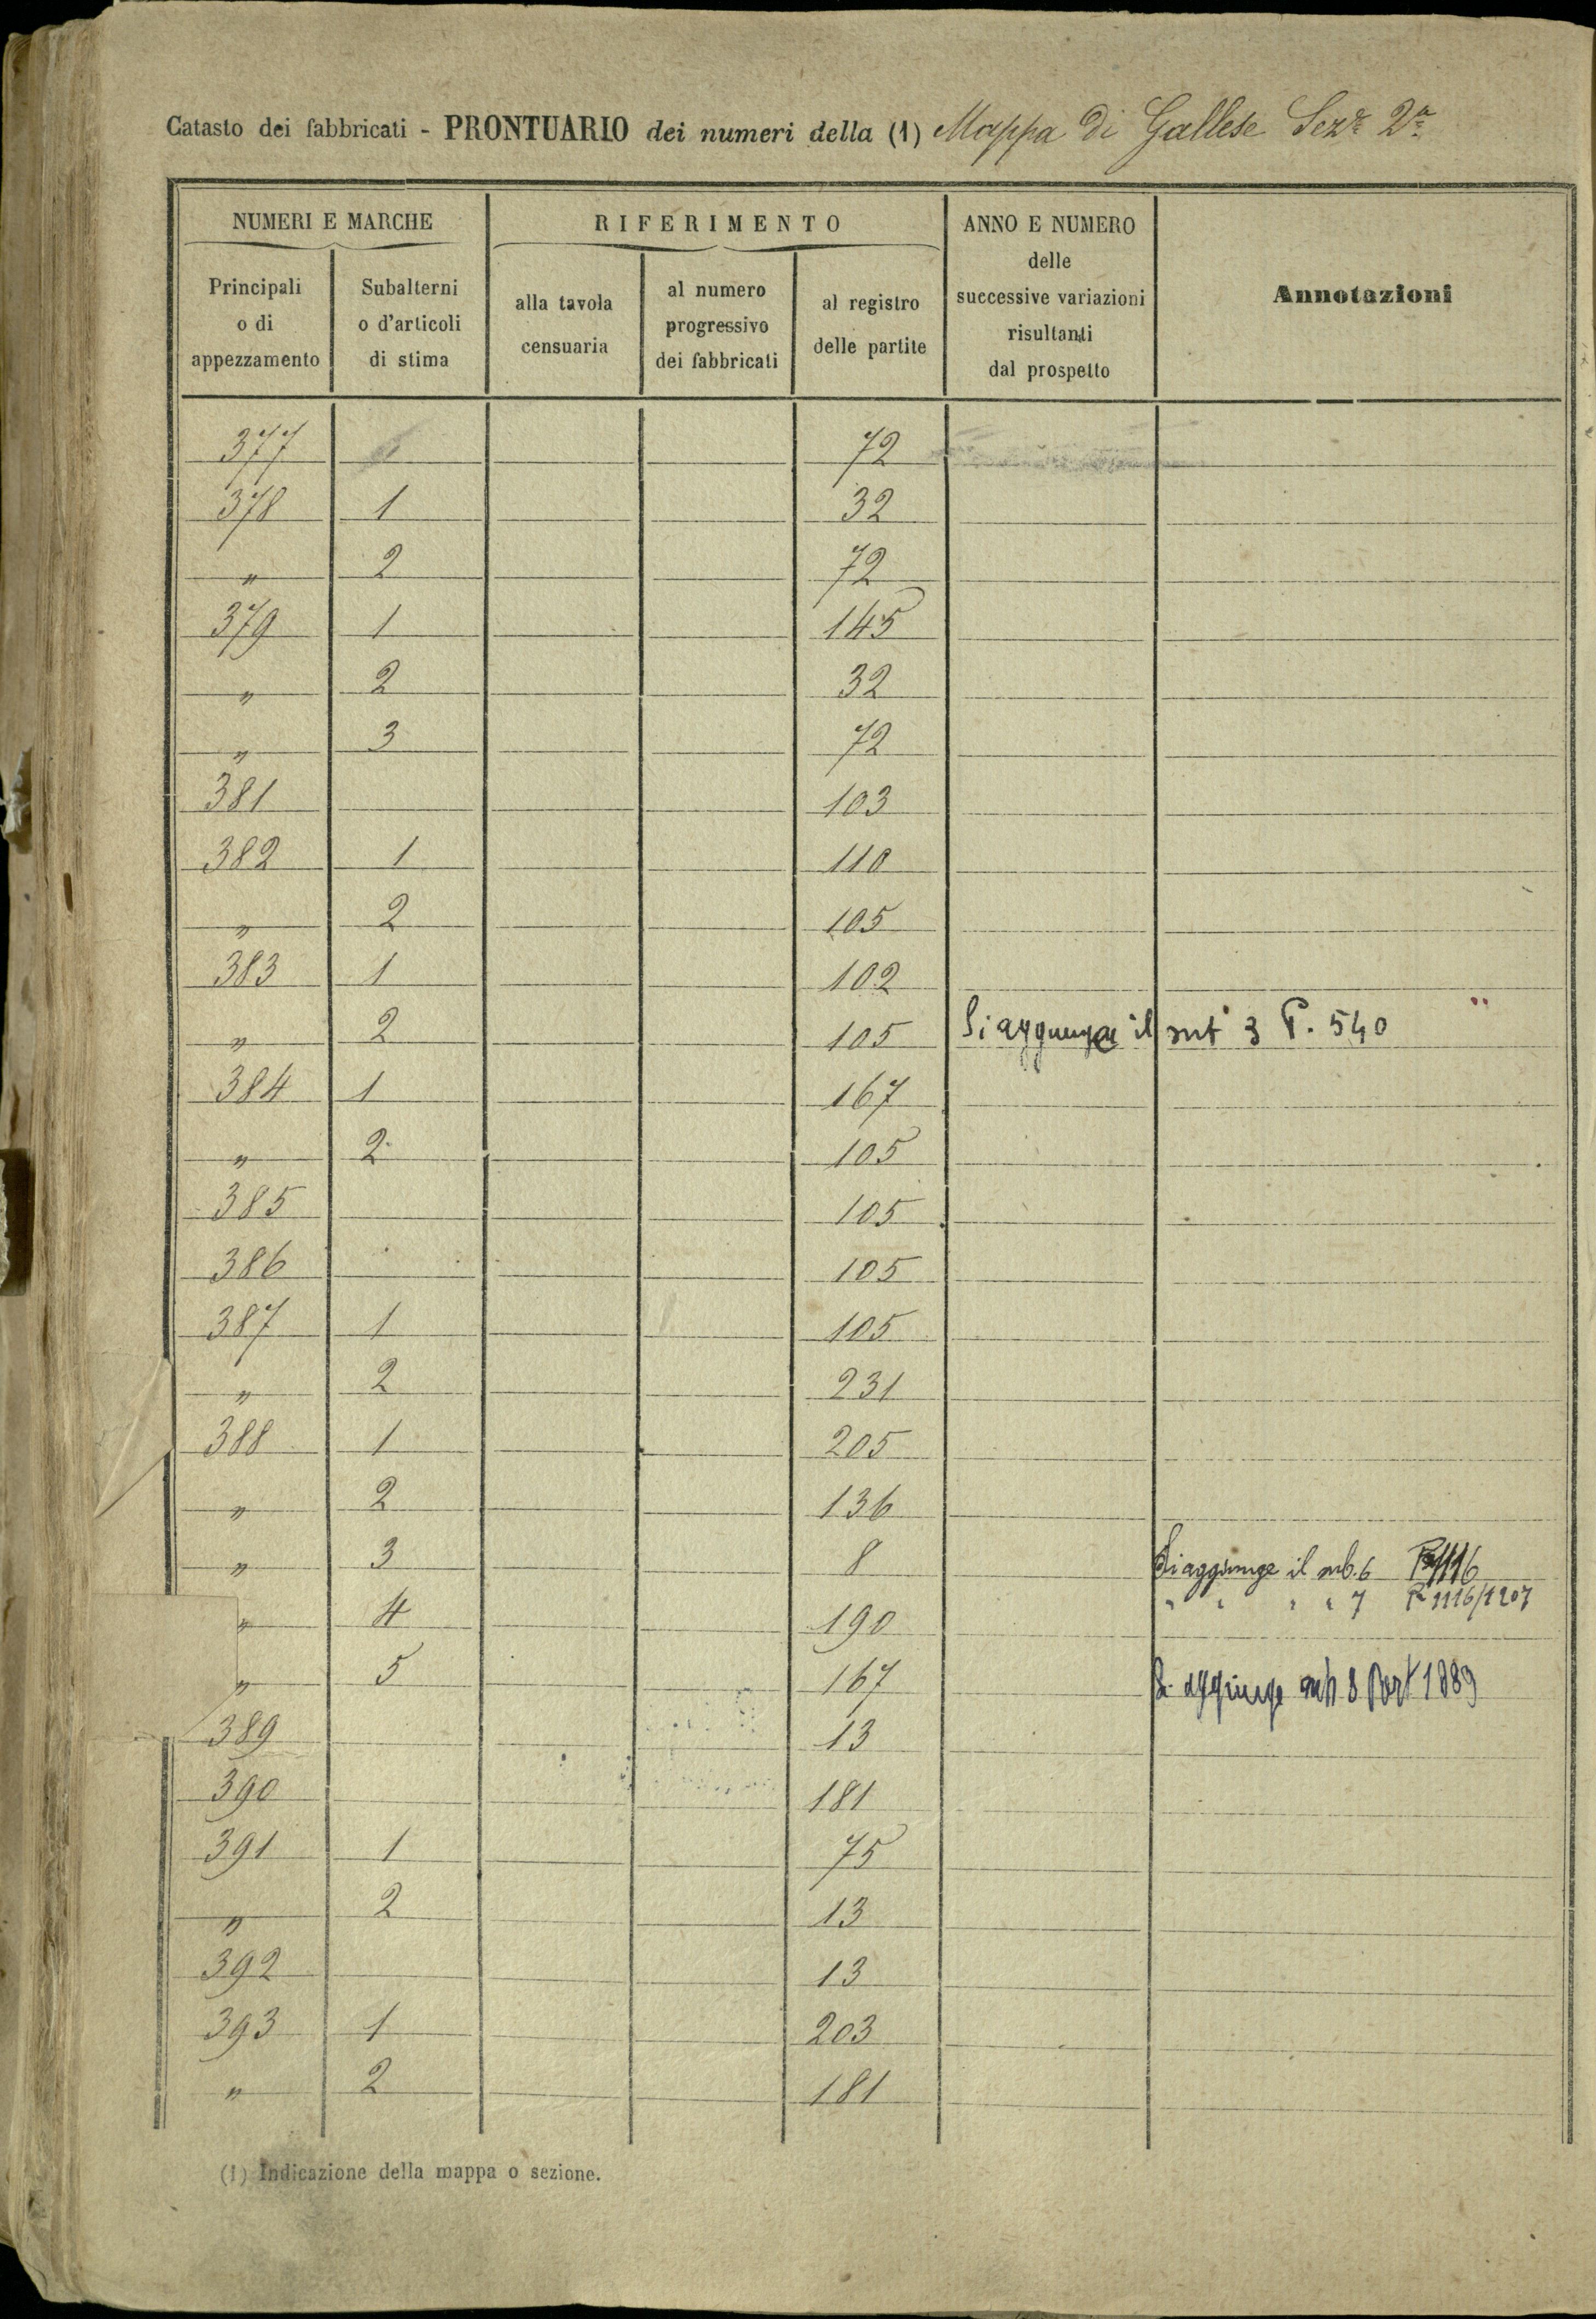 Catasto dei fabbricati - PRONTUARIO dei numeri della (1) Mappa di Gallese Sezᵉ 2ᵃ
NUMERI E MARCHE
RIFERIMENTO
ANNO E NUMERO
delle
successive variazioni
risultanti
dal prospetto
Annotazioni
Principali
o di
appezzamento
Subalterni
o d'articoli
di stima
alla tavola
censuaria
al numero
progressivo
dei fabbricati
al registro
delle partite
377 72
378 1 32
" 2 72
379 1 145
" 2 32
" 3 72
381 103
382 1 110
" 2 105
383 1 102
" 2 105 Si aggiunge il sub 3 P. 540
384 1 167
" 2 105
385 105
386 105
387 1 105
" 2 231
388 1 205
" 2 136
" 3 8 Si aggiunge il sub. 6 P 1116
" 4 190 " " " " 7 P 1116/1207
" 5 167 Si aggiunge sub 8 Part 1889
389 13
390 181
391 1 75
" 2 13
392 13
393 1 203
" 2 181
(1) Indicazione della mappa o sezione.